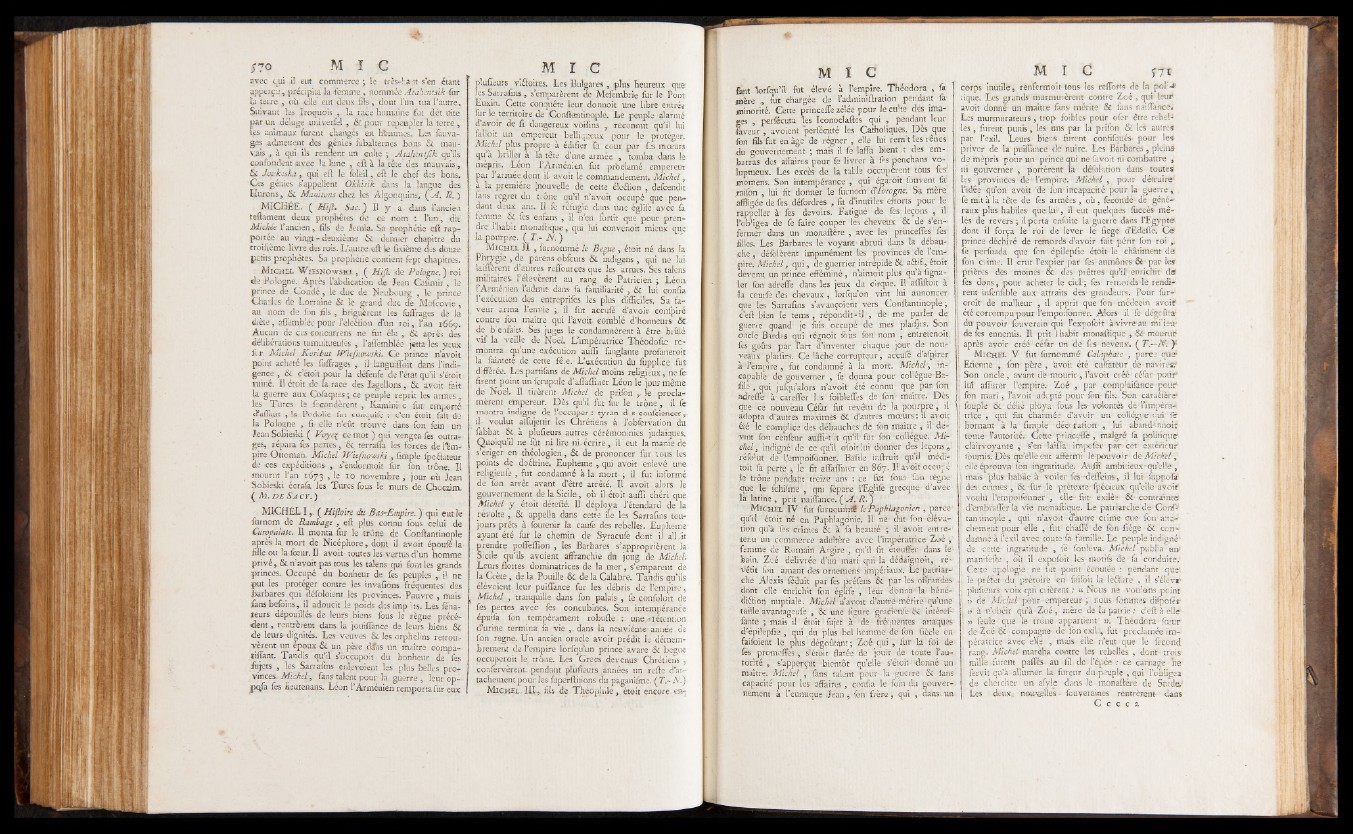 570 M I C
avec qui il eut commerce ; le très-haut s'en étant
apperçu, précipita la femme, nommée Ataentsik sur
la terre, où elle eut deux fils, dont l'un tua l'autre.
Suivant les Iroquois, la race humaine fut détruite
par un déluge universel, & pour repeupler la terre,
les animaux furent changés en hommes. Les sauva-
ges admettent des génies subalternes bons & mau-
vais, à qui ils rendent un culte ; Ataentsik qu'ils
confondent avec la lune, est à la tête des mauvais,
& Jouskeka, qui est le soleil, est le chef des bons.
Ces génies s'appellent Okkisik dans la langue des
Hurons, & Manitous chez les Algonquins. ( A. R. )
MICHÉE. ( Hist. Sac. ) Il y a dans l'ancien
testament deux prophètes de ce nom : l'un, dit
Michée l'ancien, fils de Jemla. Sa prophétie est rap-
portée au vingt-deuxième & dernier chapitre du
troisième livre des rois. L'autre est le sixième des douze
petits prophètes. Sa prophétie contient sept chapitres.
MICHEL WIESNOWSKI, ( Hist. de Pologne. ) roi
de Pologne. Après l'abdication de Jean Casimir, le
prince de Condé, le duc de Neubourg, le prince
Charles de Lorraine & le grand duc de Moscovie,
au nom de son fils, briguèrent les suffrages de la
diète, assemblée pour l'élection d'un roi, l'an 1669.
Aucun de ces concurrens ne fut élu, & après des
délibérations tumultueuses, l'assemblée jetta les yeux
sur Michel Koribut Wiesnowski. Ce prince n'avoit
point acheté les suffrages, il languissoit dans l'indi-
gence, & c'étoit pour la défense de l'état qu'il s'étoit
ruiné. Il étoit de la race des Jagellons, & avoit fait
la guerre aux Cosaques ; ce peuple reprit les armes,
les Turcs le secondèrent, Kaminiek fut emporté
d'assaut, la Podolie fut conquise : c'en étoit fait de
la Pologne, si elle n'eût trouvé dans son sein un
Jean Sobieski ( Voyez ce mot ) qui vengea ses outra-
ges, répara ses pertes, & terrassa les forces de l'Em-
pire Ottoman. Michel Wiesnowski, simple spectateur
de ces expéditions, s'endormoit sur son trône. Il
mourut l'an 1673, le 10 novembre, jour où Jean
Sobieski écrasa les Turcs sous le murs de Choczim.
( M. DE SACY. )
MICHEL I, ( Histoire du Bas-Empire. ) qui eut le
surnom de Rambage, est plus connu sous celui de
Curopalate. Il monta sur le trône de Constantinople
après la mort de Nicéphore, dont il avoit épousé la
fille ou la sœur. Il avoit toutes les vertus d'un homme
privé, & n'avoit pas tous les talens qui font les grands
princes. Occupé du bonheur de ses peuples, il ne
put les protéger contre les invasions fréquentes des
barbares qui désoloient les provinces. Pauvre, mais
sans besoins, il adoucit le poids des impôts. Les séna-
teurs dépouillés de leurs biens sous le règne précé-
dent, rentrèrent dans la jouissance de leurs biens &
de leurs dignités. Les veuves & les orphelins retrou-
vèrent un époux & un père dans un maître compa-
tissant. Tandis qu'il s'occupoit du bonheur de ses
sujets, les Sarrasins enlevoient les plus belles pro-
vinces. Michel, sans talent pour la guerre, leur op-
posa ses lieutenans. Léon l'Arménien remporta sur eux
M I C
plusieurs victoires. Les Bulgares, plus heureux que
les Sarrasins, s'emparèrent de Mesembrie sur le Pont
Euxin. Cette conquête leur donnoit une libre entrée
sur le territoire de Constantinople. Le peuple alarmé
d'avoir de si dangereux voisins, reconnut qu'il lui
falloit un empereur belliqueux pour le protéger.
Michel plus propre à édifier sa cour par ses mœurs
qu'à briller à la tête d'une armée, tomba dans le
mépris. Léon l'Arménien fut proclamé empereur
par l'armée dont il avoit le commandement. Michel,
à la première nouvelle de cette élection, descendit
sans regret du trône qu'il n'avoit occupé que pen-
dant deux ans. Il se réfugia dans une église avec sa
femme & ses enfans, il n'en sortit que pour pren-
dre l'habit monastique, qui lui convenoit mieux que
la pourpre. ( T.-N. )
MICHEL II, surnommé le Begue, étoit né dans la
Phrygie, de parens obscurs & indigens, qui ne lui
laissèrent d'autres ressources que les armes. Ses talens
militaires l'élevèrent au rang de Patricien ; Léon
l'Arménien l'admit dans sa familiarité, & lui confia
l'exécution des entreprises les plus difficiles. Sa fa-
veur arma l'envie ; il fut accusé d'avoir conspiré
contre son maître qui l'avoit comblé d'honneurs &
de bienfaits. Ses juges le condamnèrent à être brûlé
vif la veille de Noël. L'impératrice Théodosie re-
montra qu'une exécution aussi sanglante profaneroit
la sainteté de cette fête. L'exécution du supplice fut
différée. Les partisans de Michel moins religieux, ne se
firent point un scrupule d'assassiner Léon le jour même
de Noël. Il tirèrent Michel de prison, le procla-
mèrent empereur. Dès qu'il fut sur le trône, il se
montra indigne de l'occuper : tyran des consciences,
il voulut assujettir les Chrétiens à l'observation du
sabbat & à plusieurs autres cérémonies judaïques.
Quoiqu'il ne sût ni lire ni écrire, il eut la manie de
s'ériger en théologien, & de prononcer sur tous les
points de doctrine. Eupheme, qui avoit enlevé une
religieuse, fut condamné à la mort ; il fut informé
de son arrêt avant d'être arrêté. Il avoit alors le
gouvernement de la Sicile, où il étoit aussi chéri que
Michel y étoit détesté. Il déploya l'étendard de la
révolte, & appella dans cette île les Sarrasins tou-
jours prêts à soutenir la cause des rébelles. Eupheme
ayant été sur le chemin de Syracuse dont il alloit
prendre possession, les Barbares s'approprièrent la
Sicile qu'ils avoient affranchie du joug de Michel.
Leurs flottes dominatrices de la mer, s'emparent de
la Crète, de la Pouille & de la Calabre. Tandis qu'ils
élevoient leur puissance sur les débris de l'empire,
Michel, tranquille dans son palais, se consoloit de
ses pertes avec ses concubines. Son intempérance
épuisa son tempérament robuste : une rétention
d'urine termina sa vie, dans la neuvième année de
son regne. Un ancien oracle avoit prédit le démem-
brement de l'empire lorsqu'un prince avare & begue
occuperoit le trône. Les Grecs devenus Chrétiens,
conservèrent pendant plusieurs années un reste d'at-
tachement pour les superstitions du paganisme. (T.-N.)
MICHEL III, fils de Théophile, étoit encore en-
M I C
fant lorsqu'il fut élevé à l'empire. Théodora, sa
mère, fut chargée de l'administration pendant sa
minorité. Cette princesse zélée pour le culte des ima-
ges, persécuta les Iconoclastes qui, pendant leur
faveur, avoient persécuté les Catholiques. Dès que
son fils fut en âge de régner, elle lui remit les rênes
du gouvernement ; mais il se lassa bientôt des em-
barras des affaires pour se livrer à ses penchans vo-
luptueux. Les excès de la table occupèrent tous ses
momens. Son intempérance, qui égaroit souvent sa
raison, lui fit donner le surnom d'Ivrogne. Sa mère
affligée de ses désordres, fit d'inutiles efforts pour le
rappeller à ses devoirs. Fatigué de ses leçons, il
l'obligea de se faire couper les cheveux & de s'en-
fermer dans un monastère, avec les princesses ses
filles. Les Barbares le voyant abruti dans la débau-
che, désolèrent impunément les provinces de l'em-
pire. Michel, qui, de guerrier intrépide & actif, étoit
devenu un prince efféminé, n'aimoit plus qu'à signa-
ler son adresse dans les jeux du cirque. Il assistoit à
la course des chevaux, lorsqu'on vint lui annoncer
que les Sarrasins s'avançoient vers Constantinople,
c'est bien le tems, répondit-il, de me parler de
guerre quand je suis occupé de mes plaisirs. Son
oncle Bardas qui régnoit sous son nom, entretenoit
ses goûts par l'art d'inventer chaque jour de nou-
veaux plaisirs. Ce lâche corrupteur, accusé d'aspirer
à l'empire, fut condamné à la mort. Michel, in-
capable de gouverner, se donna pour collègue Ba-
sile, qui jusqu'alors n'avoit été connu que par son
adresse à caresser les foiblesses de son maître. Dès
que ce nouveau César fut revêtu de la pourpre, il
adopta d'autres maximes & d'autres mœurs : il avoit
été le complice des débauches de son maître, il de-
vint son censeur aussi-tôt qu'il fut son collègue. Mi-
chel, indigné de ce qu'il osoit lui donner des leçons,
résolut de l'empoisonner. Basile instruit qu'il médi-
toit sa perte, le fit assassiner en 867. Il avoit occupé
le trône pendant treize ans : ce fut sous son règne
que le schisme, qui sépare l'Eglise grecque d'avec
la latine, prit naissance. (A. R.)
MICHEL IV fut surnommé le Paphlagonien, parce
qu'il étoit né en Paphlagonie. Il ne dut son éléva-
tion qu'à ses crimes & à sa beauté ; il avoit entre-
tenu un commerce adultère avec l'impératrice Zoé,
femme de Romain Argire, qu'il fit étouffer dans le
bain. Zoé délivrée d'un mari qui la dédaignoit, re-
vêtit son amant des ornemens impériaux. Le patriar-
che Alexis séduit par ses présens & par les offrandes
dont elle enrichit son église, leur donna la béné-
diction nuptiale. Michel n'avoit d'autre mérite qu'une
taille avantageuse, & une figure gracieuse & intéres-
sante ; mais il étoit sujet à de fréquentes attaques
d'épilepsie, qui du plus bel homme de son siècle en
faisoient le plus dégoûtant ; Zoé qui, sur la foi de
ses promesses, s'étoit flatée de jouir de toute l'au-
torité, s'apperçut bientôt qu'elle s'étoit donné un
maître. Michel, sans talent pour la guerre & sans
capacité pour les affaires, confia le soin du gouver-
nement à l'eunuque Jean, son frère, qui, dans un
M I C 571
corps inutile, renfermoit tous les ressorts de la poli-
tique. Les grands murmurèrent contre Zoé, qui leur
avoit donné un maître sans mérite & sans naissance.
Les murmurateurs, trop foibles pour oser être rébel-
les, furent punis, les uns par la prison & les autres
par l'exil. Leurs biens furent confisqués pour les
priver de la puissance de nuire. Les Barbares, pleins
de mépris pour un prince qui ne savoit ni combattre,
ni gouverner, portèrent la désolation dans toutes
les provinces de l'empire. Michel, pour détruire
l'idée qu'on avoit de son incapacité pour la guerre,
se mit à la tête de ses armées, où, secondé de géné-
raux plus habiles que lui, il eut quelques succès mê-
lés de revers ; il porta ensuite la guerre dans l'Egypte
dont il força le roi de lever le siege d'Edesse. Ce
prince déchiré de remords d'avoir fait périr son roi,
se persuada que son épilepsie étoit le châtiment de
son crime. Il crut l'expier par ses aumônes & par les
prières des moines & des prêtres qu'il enrichit de
ses dons, pour acheter le ciel ; ses remords le rendi-
rent insensible aux attraits des grandeurs. Pour sur-
croît de malheur, il apprit que son médecin avoit
été corrompu pour l'empoisonner. Alors il se dégoûta
du pouvoir souverain qui l'exposoit à vivre au milieu
de ses ennemis. Il prit l'habit monastique, & mourut
après avoir créé césar un de ses neveux. ( T.-N. )
MICHEL V fut surnommé Calaphate, parce que
Etienne, son père, avoit été calfateur de navires.
Son oncle, avant de mourir, l'avoit créé césar pour
lui assurer l'empire. Zoé, par complaisance pour
son mari, l'avoit adopté pour son fils. Son caractère
souple & délié ploya sous les volontés de l'impéra-
trice, qui fut charmée d'avoir un collègue qui se
bornant à la simple décoration, lui abandonnoit
toute l'autorité. Cette princesse, malgré sa politique
soumis. Dès qu'elle eut affermi le pouvoir de Michel,
elle éprouva son ingratitude. Aussi ambitieux qu'elle,
mais plus habile à voiler ses desseins, il lui supposa
des crimes, & sur le prétexte spécieux qu'elle avoit
voulu l'empoisonner, elle fut exilée & contrainte
d'embrasser la vie monastique. Le patriarche de Cons-
tantinople, qui n'avoit d'autre crime que son atta-
chement pour elle, fut chassé de son siège & con-
damné à l'exil avec toute sa famille. Le peuple indigné
de cette ingratitude, se souleva. Michel publia un
manifeste, où il exposoit les motifs de sa conduite.
Cette apologie ne fut point écoutée : pendant que
le préfet du prétoire en faisoit la lecture, il s'éleva
plusieurs voix qui crièrent : « Nous ne voulons point
» de Michel pour empereur ; nous sommes disposés
» à n'obéir qu'à Zoé, mère de la patrie : c'est à elle
» seule que le trône appartient ». Théodora sœur
de Zoé & compagne de son exil, fut proclamée im-
pératrice avec elle, mais elle n'eut que le second
rang. Michel marcha contre les rebelles, dont trois
mille furent passés au fil de l'épée : ce carnage ne
servit qu'à allumer la fureur du peuple, qui l'obligea
de chercher un asyle dans le monastère de Stude.
Les deux nouvelles souveraines rentrèrent dans
C c c c 2